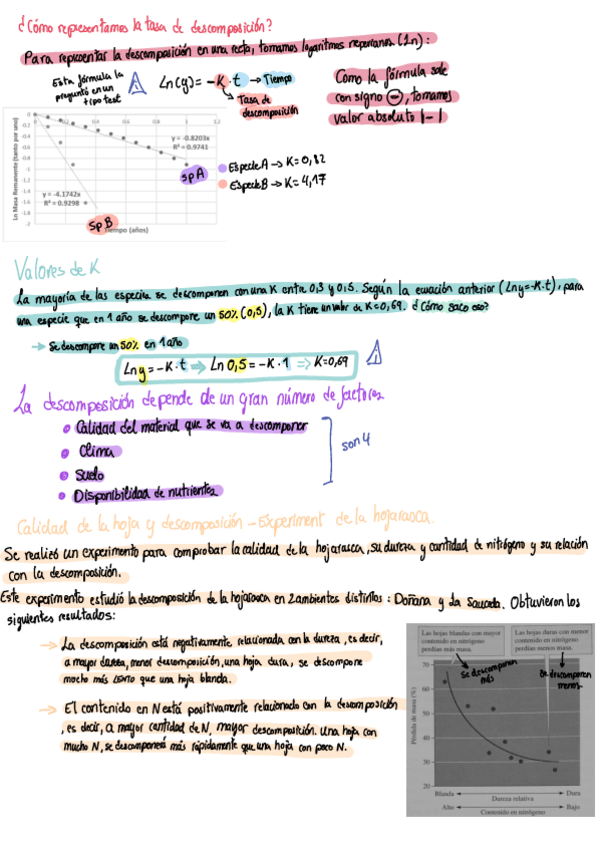 ¿Cómo representamos la tasa de descomposición?
Para representar la descomposición en una recta, tomamos logaritmos neperianos (Ln):
Esta fórmula la
preguntó en un
tipo test
Ln(y) = -K · t → Tiempo
Tasa de
descomposición
Como la fórmula sale
con signo -, tomamos
valor absoluto |-|
Ln Masa Remanente (tanto por uno)
0 0.2 0.4 0.6 0.8 1 1.2
0
-0.2
-0.4
-0.6
-0.8
-1
-1.2
-1.4
-1.6
-1.8
-2
y = -0.8203x
R² = 0.9741
sp A
y = -4.1742x
R² = 0.9298
sp B
Tiempo (años)
Especie A → K = 0,82
Especie B → K = 4,17
Valores de K
La mayoría de las especies se descomponen con una K entre 0,3 y 0,5. Según la ecuación anterior (Lny=-K·t), para
una especie que en 1 año se descompone un 50% (0,5), la K tiene un valor de K=0,69. ¿Cómo saco eso?
→ Se descompone un 50% en 1 año
Ln y = -K · t ⇒ Ln 0,5 = -K · 1 ⇒ K=0,69
La descomposición depende de un gran número de factores
• Calidad del material que se va a descomponer
• Clima
• Suelo
• Disponibilidad de nutrientes
son 4
Calidad de la hoja y descomposición - Experiment de la hojarasca.
Se realizó un experimento para comprobar la calidad de la hojarasca, su dureza y cantidad de nitrógeno y su relación
con la descomposición.
Este experimento estudió la descomposición de la hojarasca en 2 ambientes distintos: Doñana y La Sauceda. Obtuvieron los
siguientes resultados:
→ La descomposición está negativamente relacionada con la dureza, es decir,
a mayor dureza, menor descomposición, una hoja dura, se descompone
mucho más lento que una hoja blanda.
→ El contenido en N está positivamente relacionado con la descomposición
, es decir, a mayor cantidad de N, mayor descomposición. Una hoja con
mucho N, se descompondrá más rápidamente que una hoja con poco N.
Las hojas blandas con mayor
contenido en nitrógeno
perdían más masa.
Las hojas duras con menor
contenido en nitrógeno
perdían menos masa.
Se descomponen
más
Se descomponen
menos
Pérdida de masa (%)
70
60
50
40
30
20
Blanda Dureza relativa Dura
Alto Contenido en nitrógeno Bajo